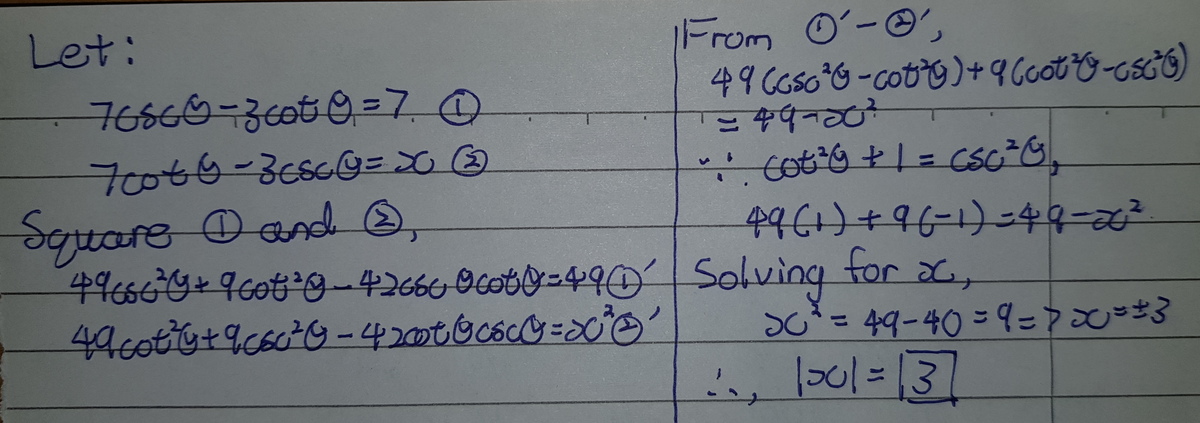 Let:
7cscθ-3cotθ=7 ①
7cotθ-3cscθ=x ②
Square ① and ②,
49csc²θ+9cot²θ-42cscθcotθ=49①'
49cot²θ+9csc²θ-42cotθcscθ=x²②'
From ①'-②',
49(csc²θ-cot²θ)+9(cot²θ-csc²θ)
=49-x²
∵ cot²θ+1=csc²θ,
49(1)+9(-1)=49-x²
Solving for x,
x²=49-40=9=>x=±3
∴, |x|=3